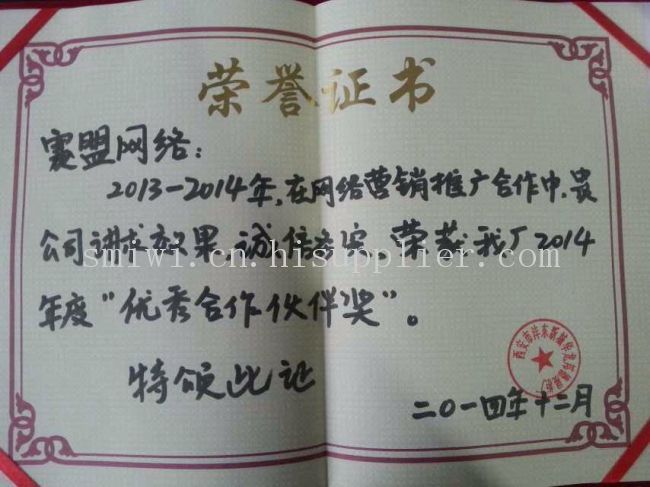 荣誉证书
赛盟网络：
2013-2014年，在网络营销推广合作中，贵
公司讲求效果 诚信务实 荣获我厂2014
年度“优秀合作伙伴奖”。
特颁此证
二〇一四年十二月
smiwi.cn.hisupplier.com